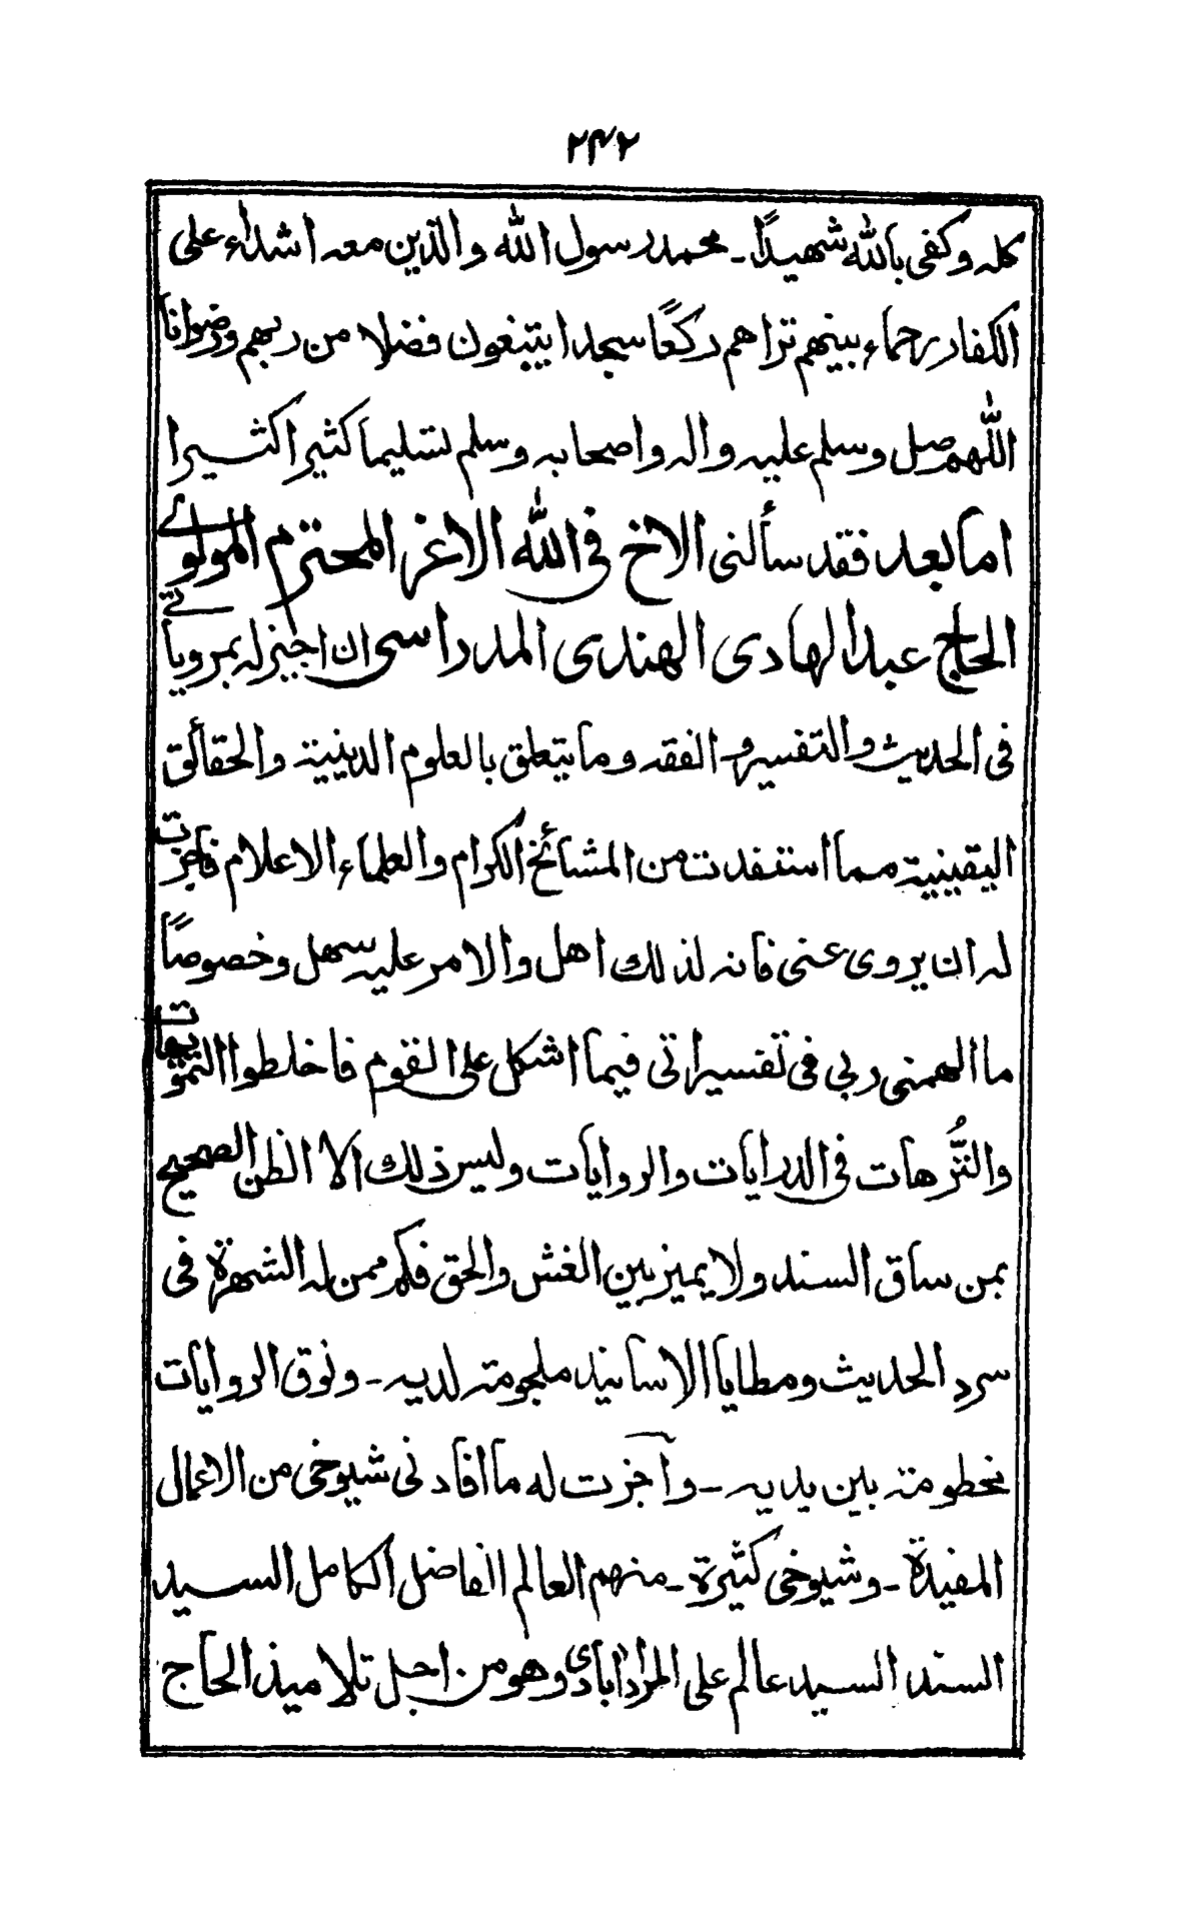 ۲۴۲
كله وكفى بالله شهيدًا ـ محمد رسول الله والذين معه اشداء على
الكفار رحماء بينهم تراهم ركعًا سجدا يبتغون فضلا من ربهم ورضوانا
اللهم صل وسلم عليه واله واصحابه وسلم تسليما كثيرا كثيرا
اما بعد فقد سألنى الاخ فى الله الاغر المحترم المولوے
الحاج عبد الهادى الهندى المدراسى ان اجيز له بمروياتے
فى الحديث والتفسير و الفقه وما يتعلق بالعلوم الدينية والحقائق
اليقينية مما استفدت من المشائخ الكرام والعلماء الاعلام فاجزت
له ان يروى عنى فانه لذلك اهل والامر عليه سهل وخصوصًا
ما الهمنى ربى فى تفسيراتى فيما اشكل على القوم فاخلطوا التمويهات
والتُّرهات فى الدرايات والروايات وليس ذلك الا الظن الصحيح
بمن ساق السند ولا يميز بين الغش والحق فكم ممن له الشهرة فى
سرد الحديث ومطايا الاسانيد ملجومة لديه ـ ونوق الروايات
مخطومة بين يديه ـ وآجزت له ما افادنى شيوخى من الاعمال
المفيدة ـ وشيوخى كثيرة ـ منهم العالم الفاضل الكامل السيد
السند السيد عالم على المرادابادى وهو من اجل تلاميذ الحاج